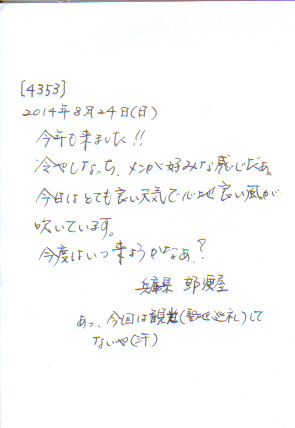 [4353]
2014年8月24日(日)
今年も来ました!!
冷やしなっち、メンが好みな感じだぁ。
今日はとても良い天気で心地良い風が
吹いています。
今度はいつ来ようかなぁ?
兵庫県
あっ、今回は観光(聖地巡礼)して
ないや(汗)